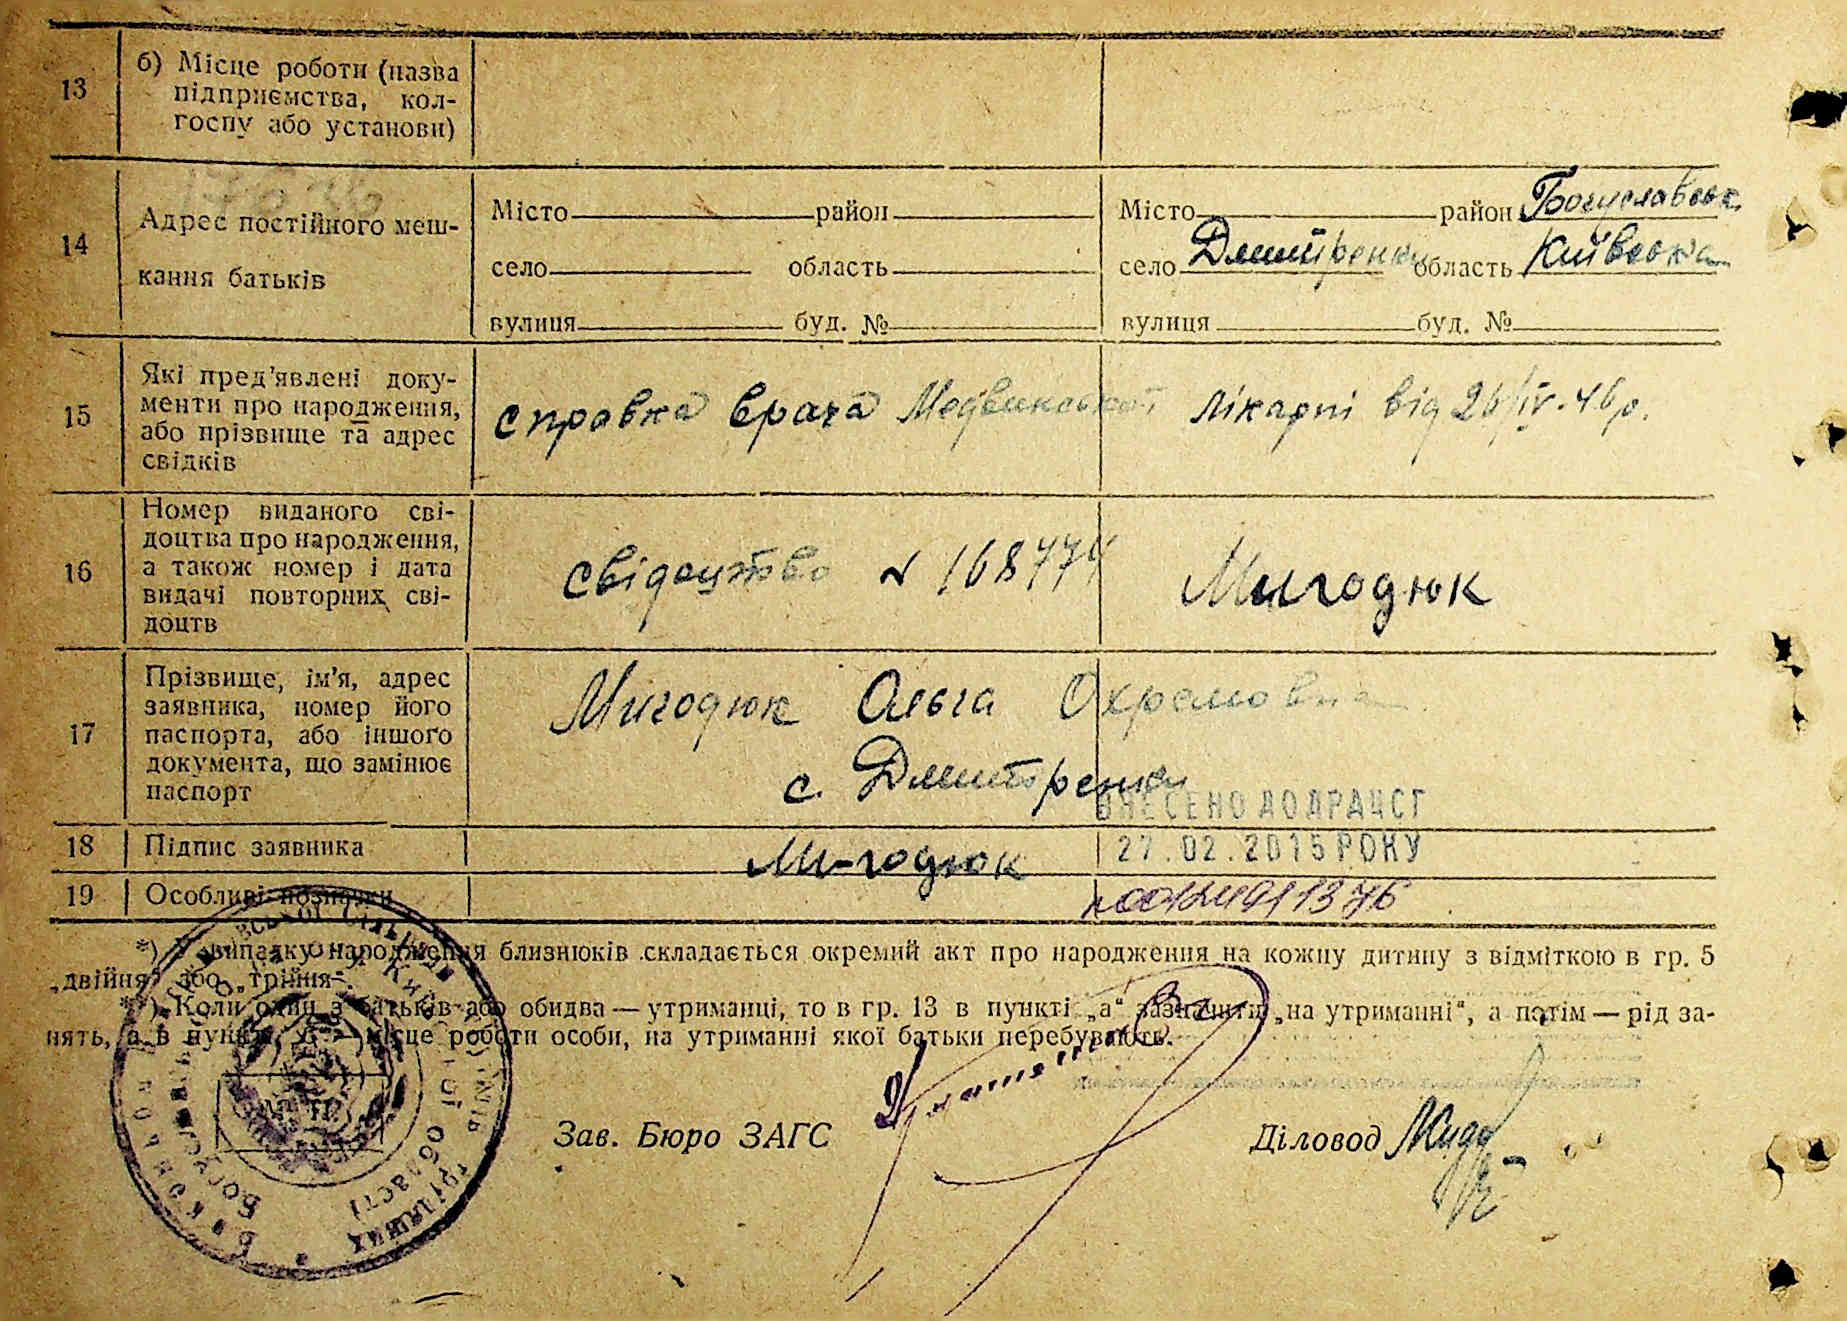 13 б) Місце роботи (назва
підприємства, кол-
госпу або установи)
14 Адрес постійного меш-
кання батьків
Місто район Місто район Богуславськ
село область село Дмитренки область Київська
вулиця буд. № вулиця буд. №
15 Які пред’явлені доку-
менти про народження,
або прізвище та адрес
свідків
справка врача Медвинської лікарні від 26/IV-46р.
16 Номер виданого сві-
доцтва про народження,
а також номер і дата
видачі повторних сві-
доцтв
свідоцтво № 168774 Мигодюк
17 Прізвище, ім’я, адрес
заявника, номер його
паспорта, або іншого
документа, що замінює
паспорт
Мигодюк Ольга Охремовна
с. Дмитренки
ВНЕСЕНО ДО ДРАЦСГ
18 Підпис заявника Мигодюк 27.02.2015 РОКУ
19 Особливі позначки
*) У випадку народження близнюків складається окремий акт про народження на кожну дитину з відміткою в гр. 5
„двійня“ або „трійня“.
**) Коли один з батьків або обидва — утриманці, то в гр. 13 в пункті „а“ зазначити „на утриманні“, а потім — рід за-
нять, а в пункті „б“ — місце роботи особи, на утриманні якої батьки перебувають.
Зав. Бюро ЗАГС Діловод